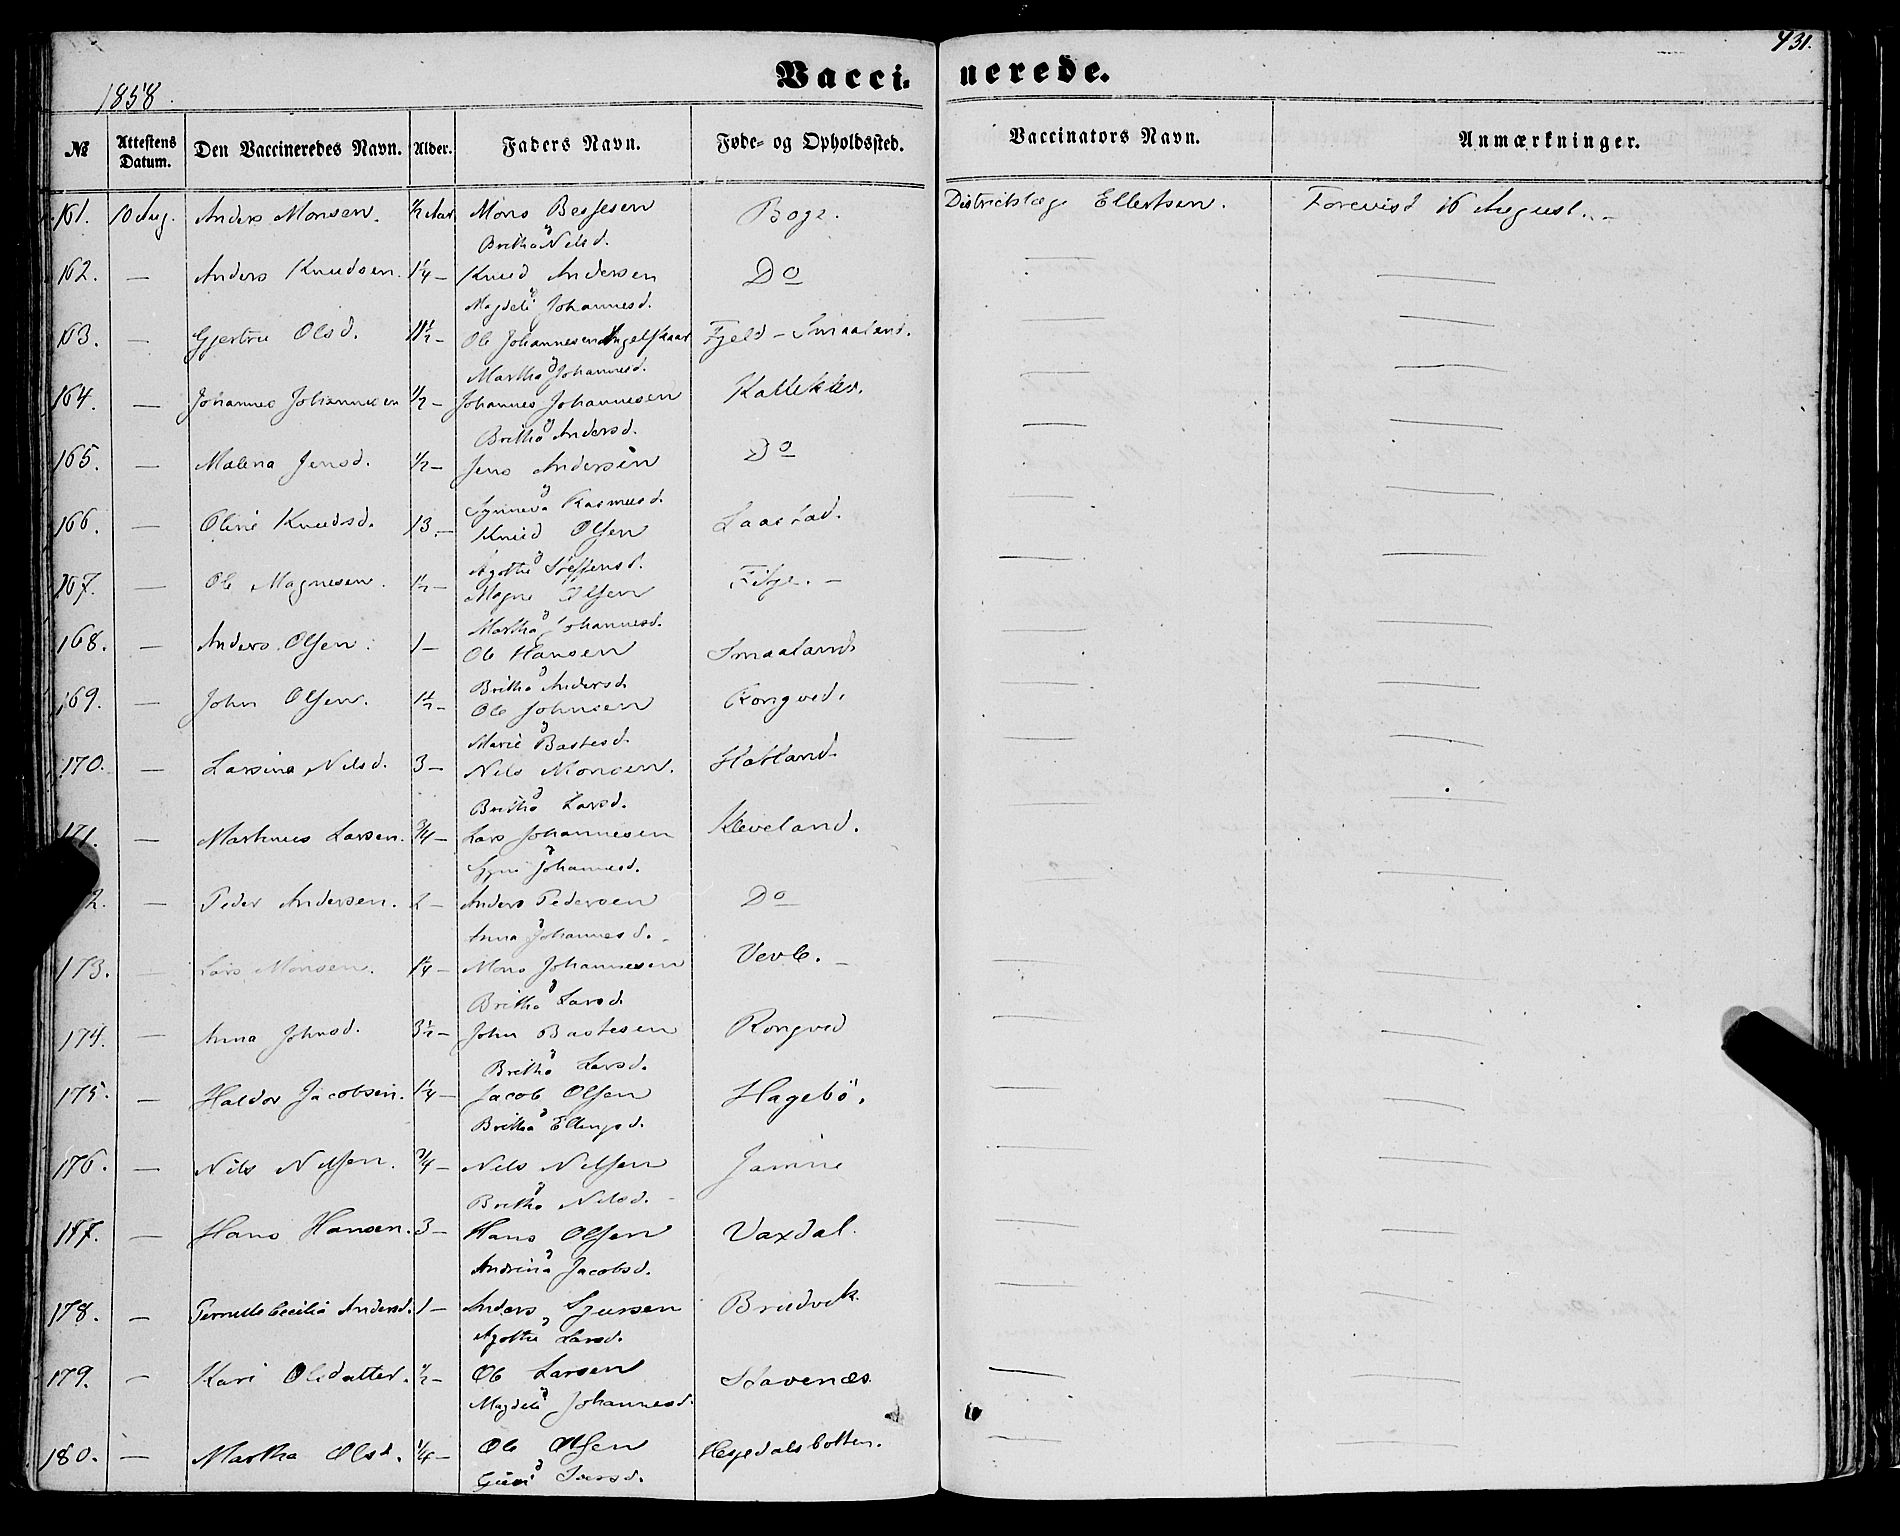 431.
1858.
Vacci- nerede.
№ Attestens Datum. Den Vaccineredes Navn. Alder. Faders Navn. Føde- og Opholdssted. Vaccinators Navn. Anmærkninger.
161. 10 Aug. Anders Monsen. ½ Aar Mons Bessesen Boge. Districtslæge Ellertsen. Forevist 16 August. -
Britha Nilsd.
162. — Anders Knudsen. 1¼ — Knud Andersen Do — —
Magdeli Johannesd.
163. — Gjertru Olsd. 11½ — Ole Johannesen Fjeld - Smaaland. — —
Martha Johannesd.
164. — Johannes Johannesen ½ — Johannes Johannesen Kalleklev. — —
Britha Andersd.
165. — Malena Jensd. ½ — Jens Andersen Do — —
Synneva Rasmusd.
166. — Oline Knudsd. 13. — Knud Olsen Laastad. — —
Agothe Steffensd.
167. — Ole Magnesen. 1½ — Magne Olsen — — —
Martha Johannesd.
168. — Anders Olsen. 1 — Ole Hansen Smaaland. — —
Britha Andersd.
169. — John Olsen. 1½ — Ole Johnsen Rongved. — —
Marie Bastesd.
170. — Larsina Nilsd. 3 — Nils Monsen. Hatland. — —
Britha Larsd.
171. — Martinus Larsen. ¾ — Lars Johannesen Kleveland. — —
Johannesd.
2. — Peder Andersen. 2 — Anders Pedersen Do — —
Anna Johannesd. -
173. — Lars Monsen. 1¼ — Mons Johannesen Vevle. — — —
Britha Larsd.
174. — Anna Johnsd. 3½ — John Bastesen Rongved — —
Britha Larsd.
175. — Haldor Jacobsen. 1¼ — Jacob Olsen Hagebö. — —
Britha Ellingsd.
176. — Nils Nilsen. ¾ — Nils Nilsen Jamne — —
Britha Nilsd. -
177. — Hans Hansen. 3 — Hans Olsen Vaxdal. — —
Andrina Jacobsd.
178. — Pernille Cecilia Andersd. 1 — Anders Sjursen Brudvik — —
Agothe Larsd.
179. — Kari Olsdatter. ½ — Ole Larsen Stavenæs. — —
Magdeli Johannesd.
180. — Martha Olsd. ¼ — Ole Olsen Hesjedalsbotten. — —
Guri Iversd.